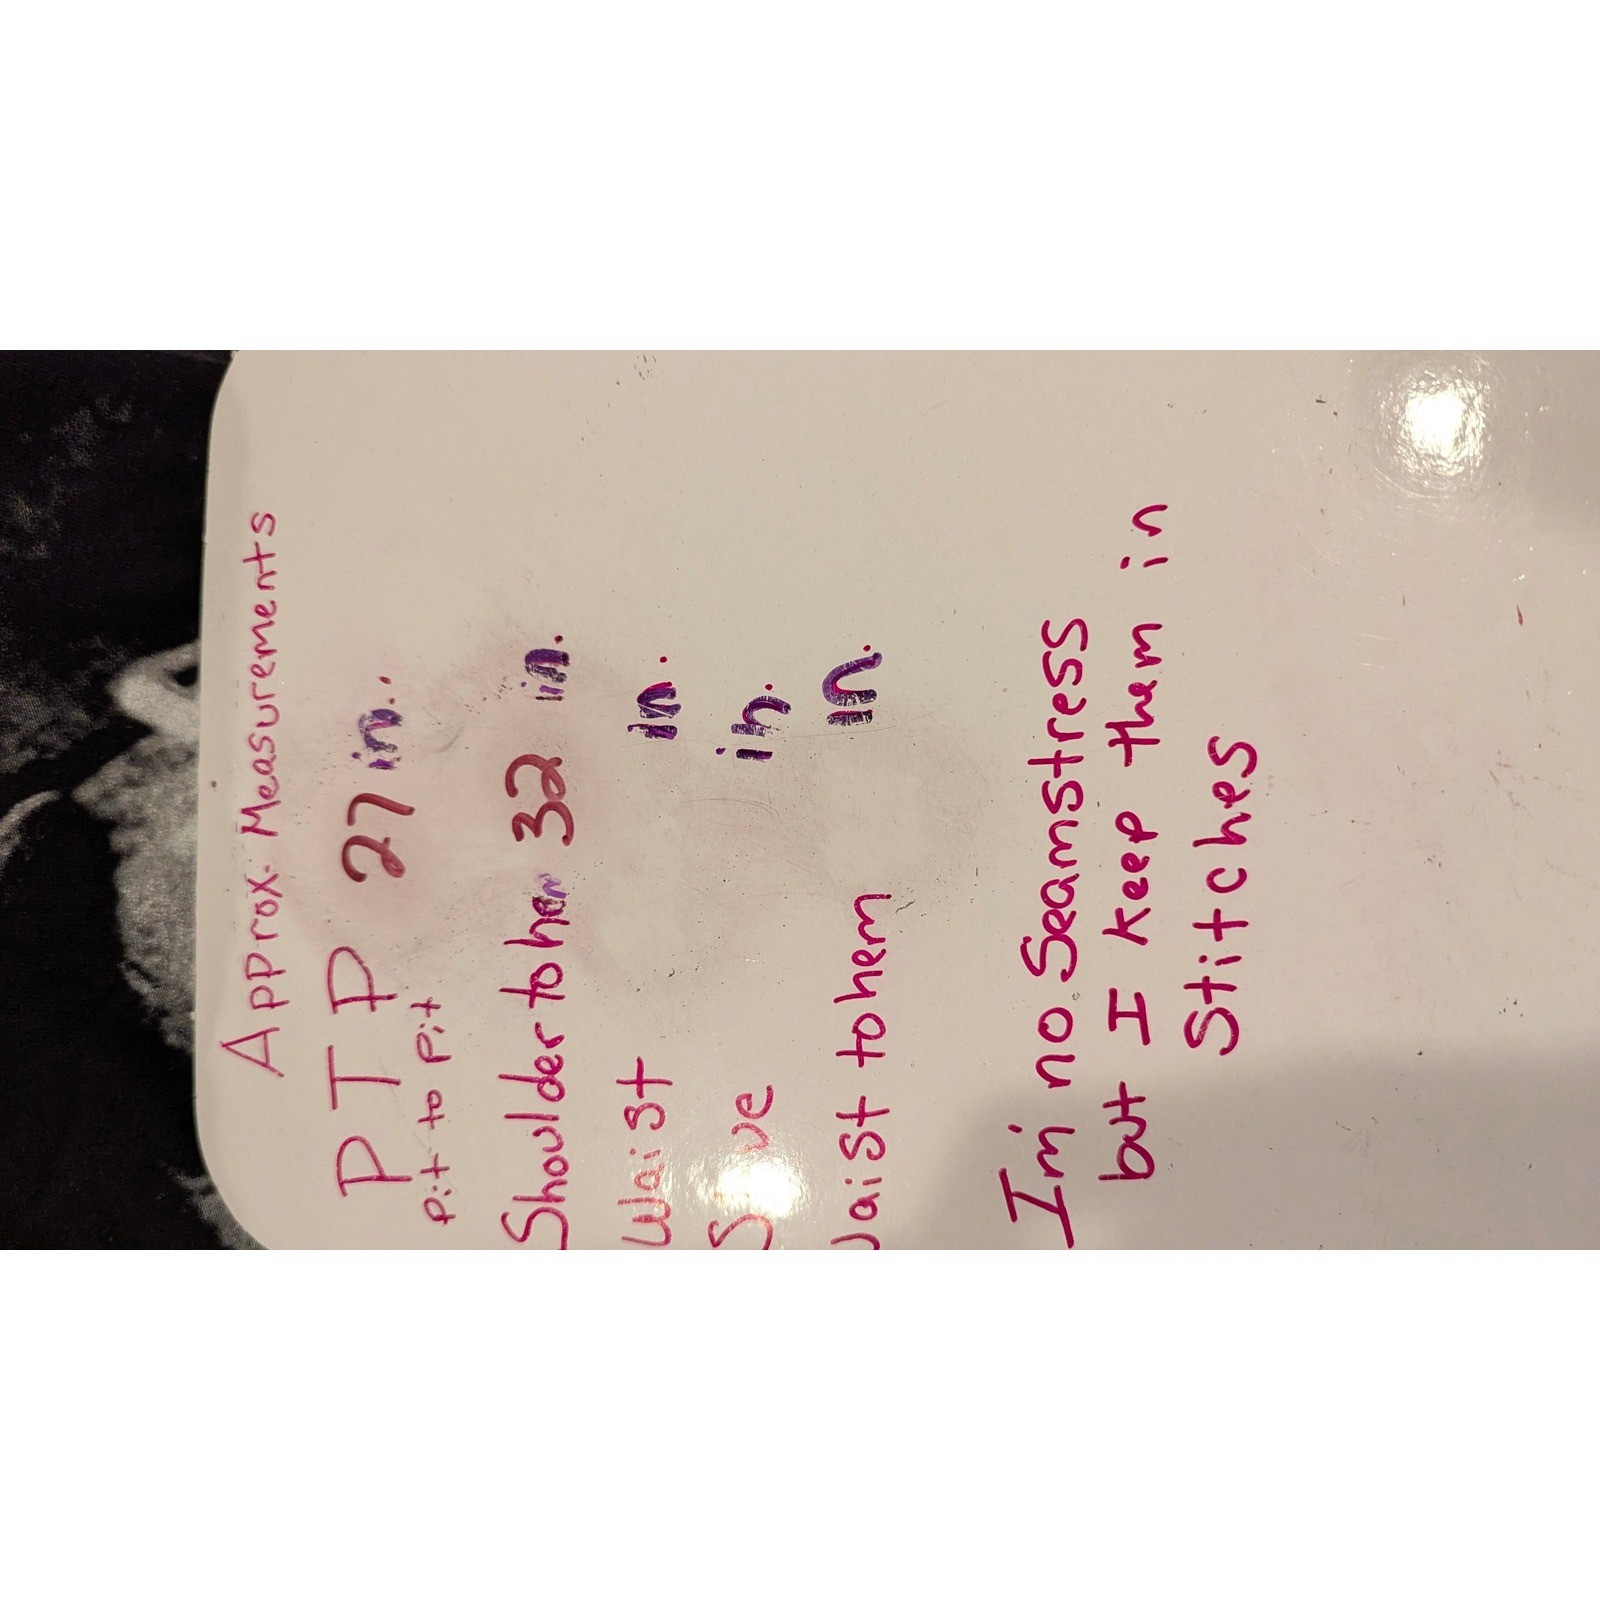 Approx. Measurements
PTP 27 in..
pit to pit
Shoulder to hem 32 in.
Waist in.
in.
to hem in.
I'm no Seamstress
but I keep them in
Stitches